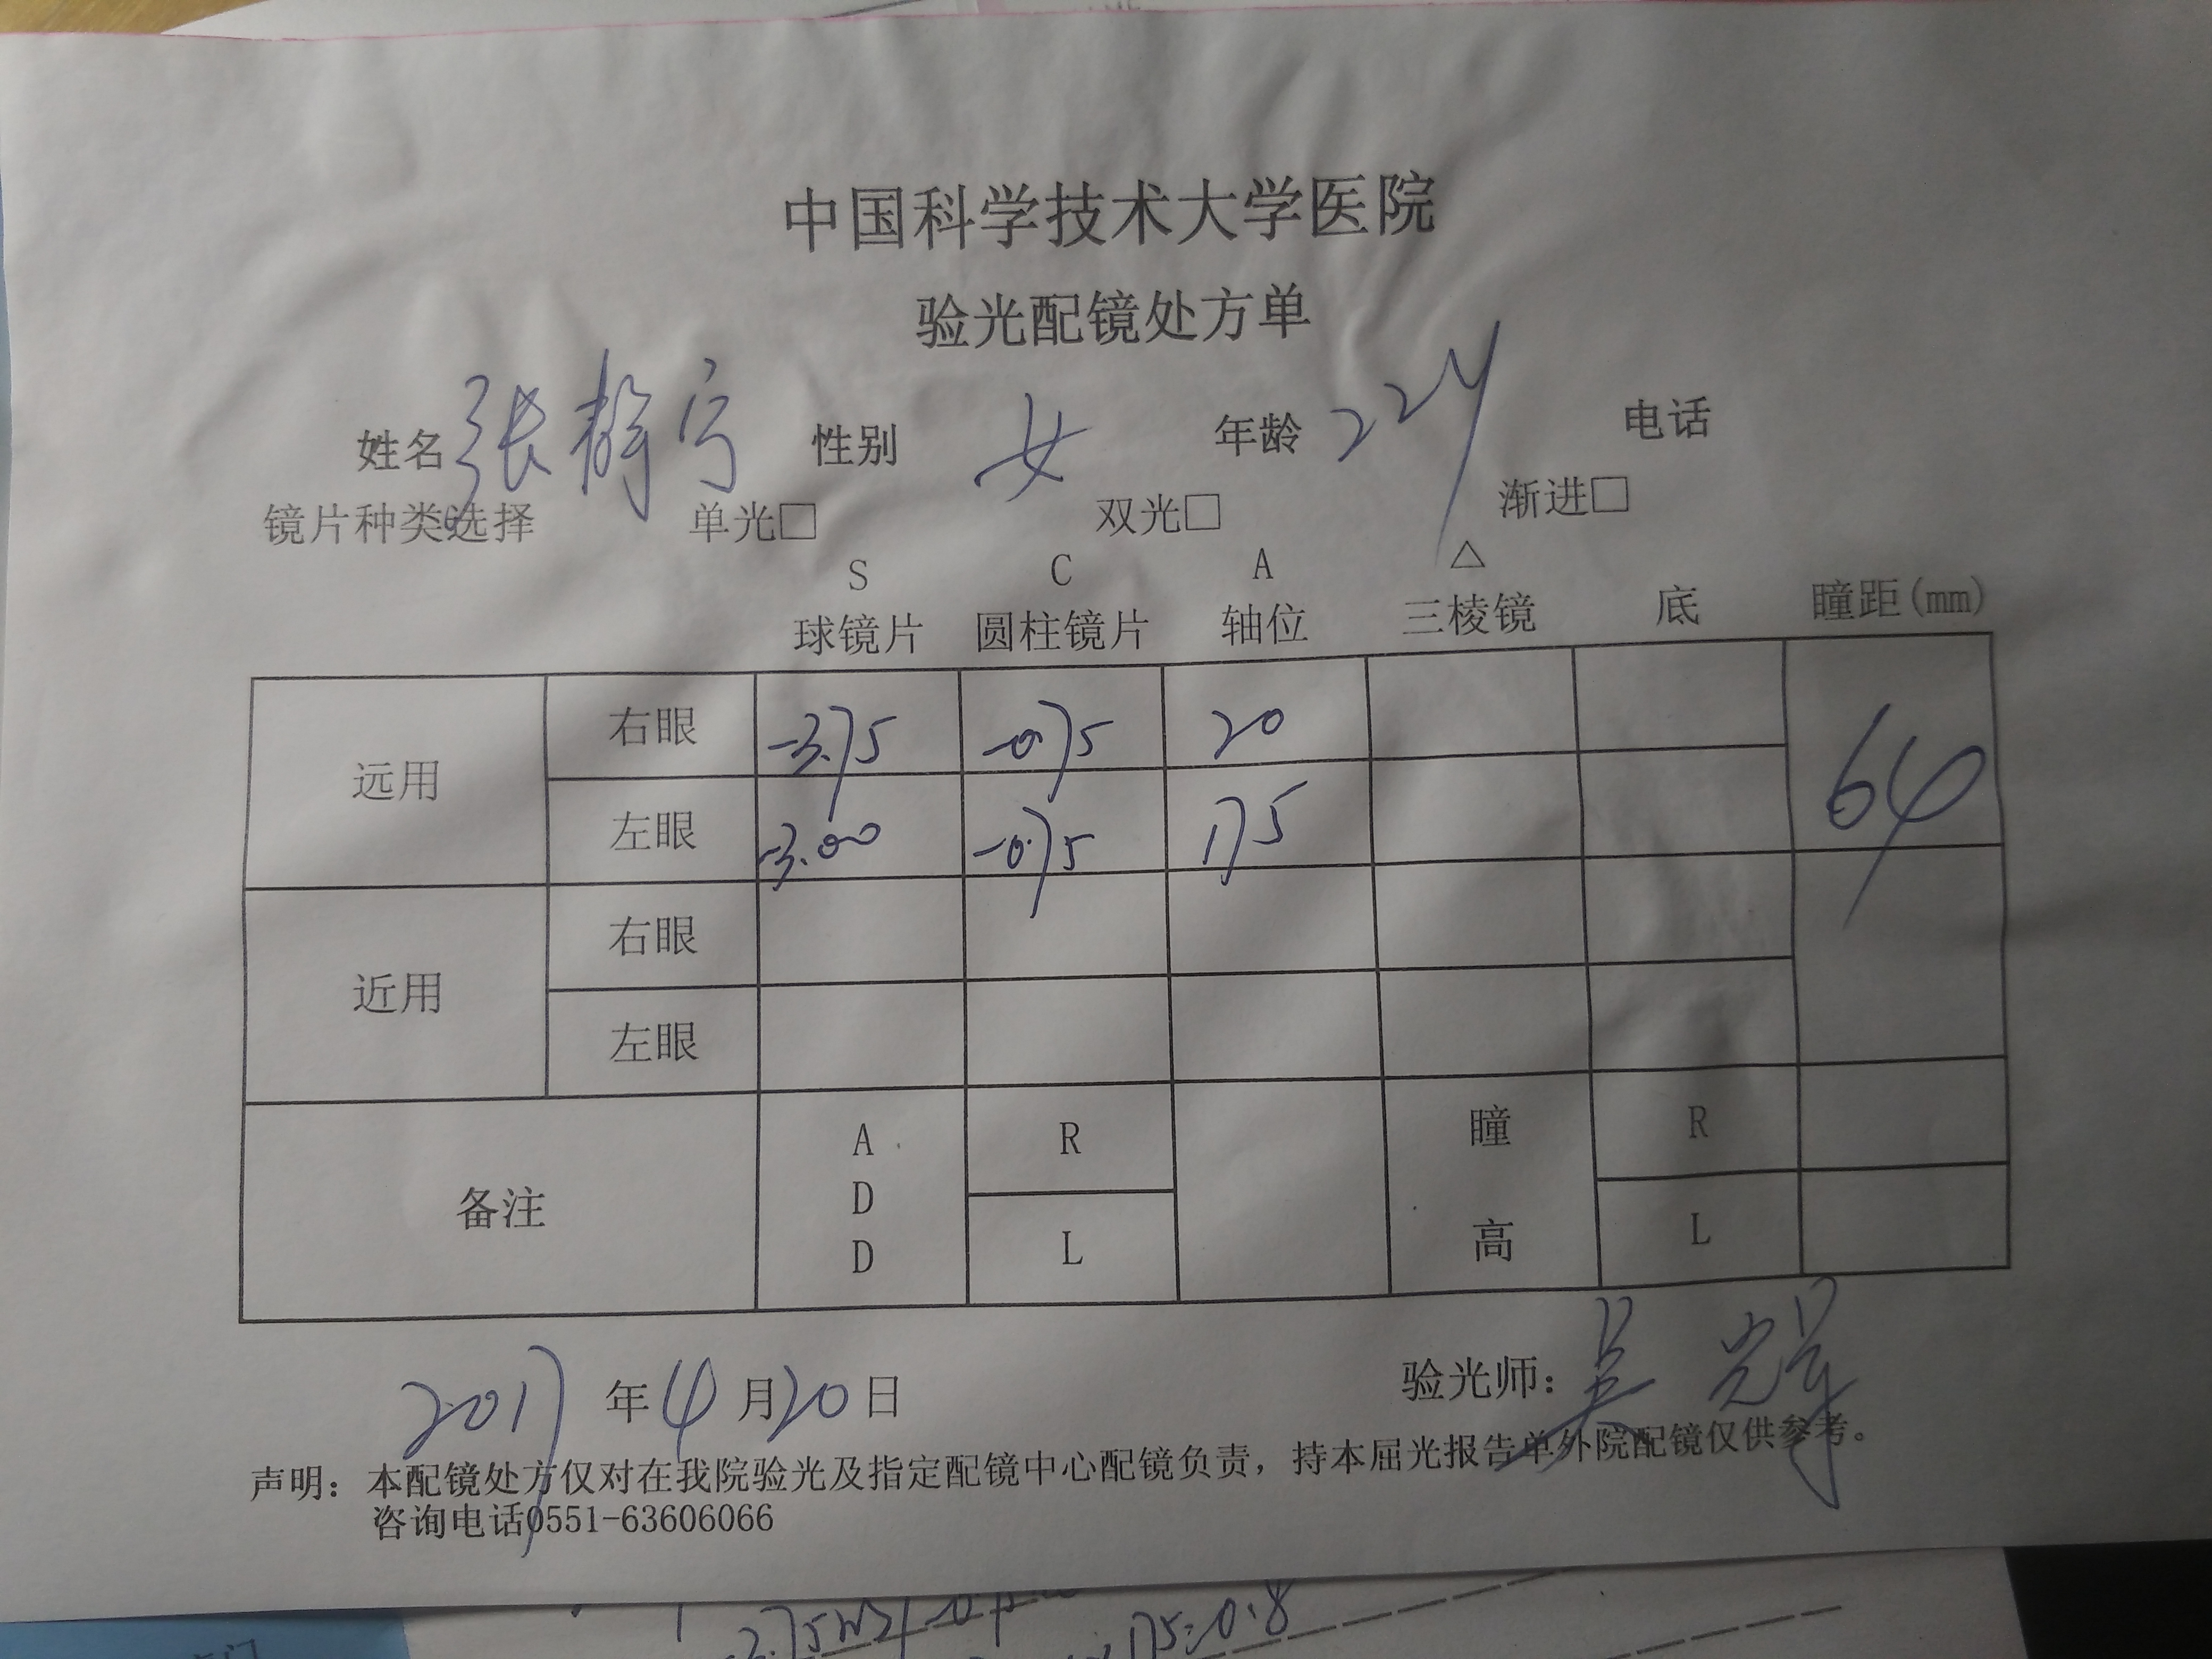 中国科学技术大学医院
验光配镜处方单
姓名 张静宁 性别 女 年龄 22y 电话
镜片种类选择 单光□ 双光□ 渐进□
S C A △
球镜片 圆柱镜片 轴位 三棱镜 底 瞳距(mm)
远用 右眼 -3.75 -0.75 20 64
左眼 -3.00 -0.75 175
近用 右眼
左眼
备注 ADD R 瞳高 R
L L
2017年4月20日 验光师：吴光辉
声明：本配镜处方仅对在我院验光及指定配镜中心配镜负责，持本屈光报告单外院配镜仅供参考。
咨询电话0551-63606066
175:0.8